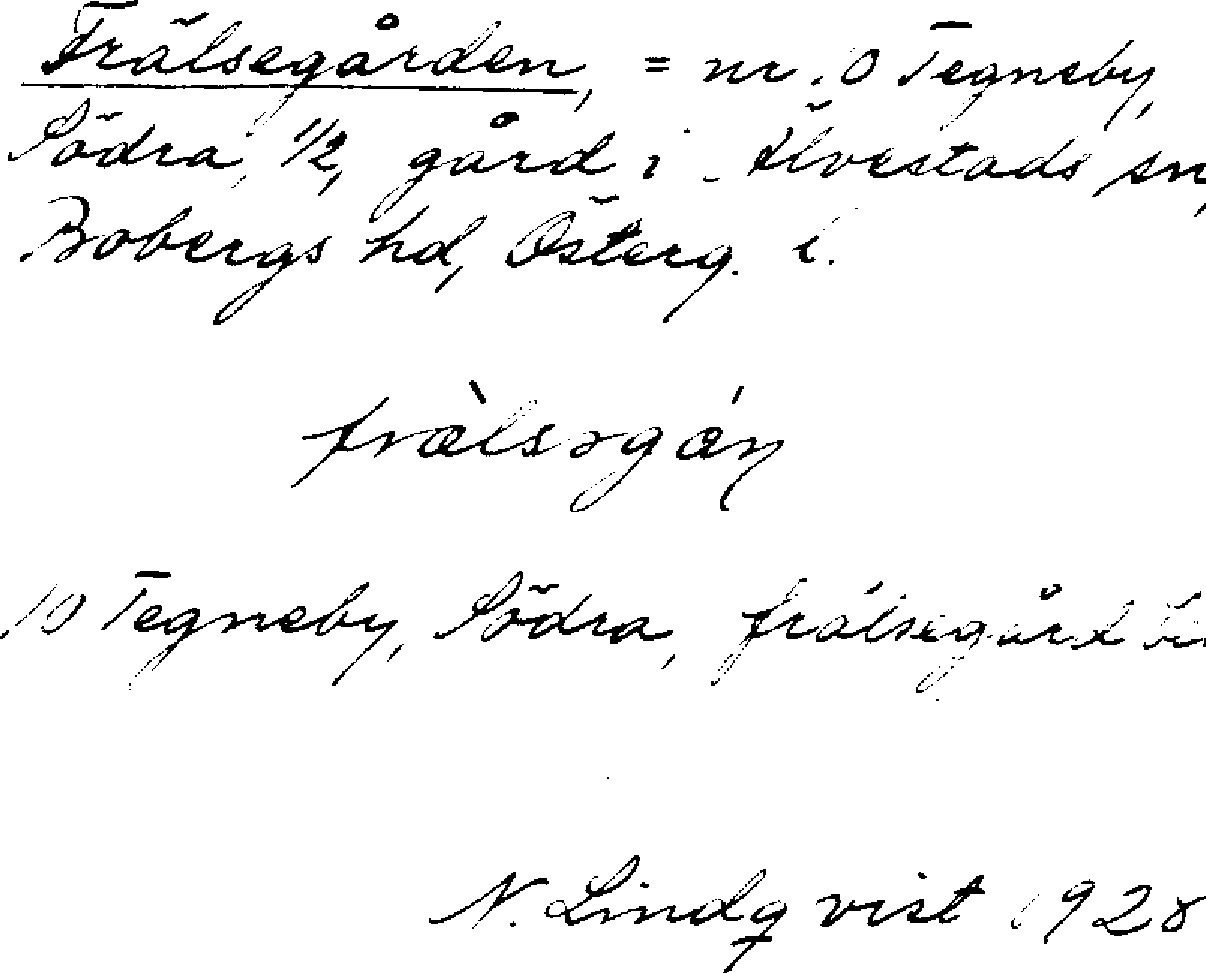 Frälsegården, = nr 10 Tegneby,
Södra, 1/2, gård i Älvestads sn,
Bobergs hd, Österg. l.
fræ̀lsəgán
10 Tegneby, Södra, frälsegård
N. Lindqvist 1928